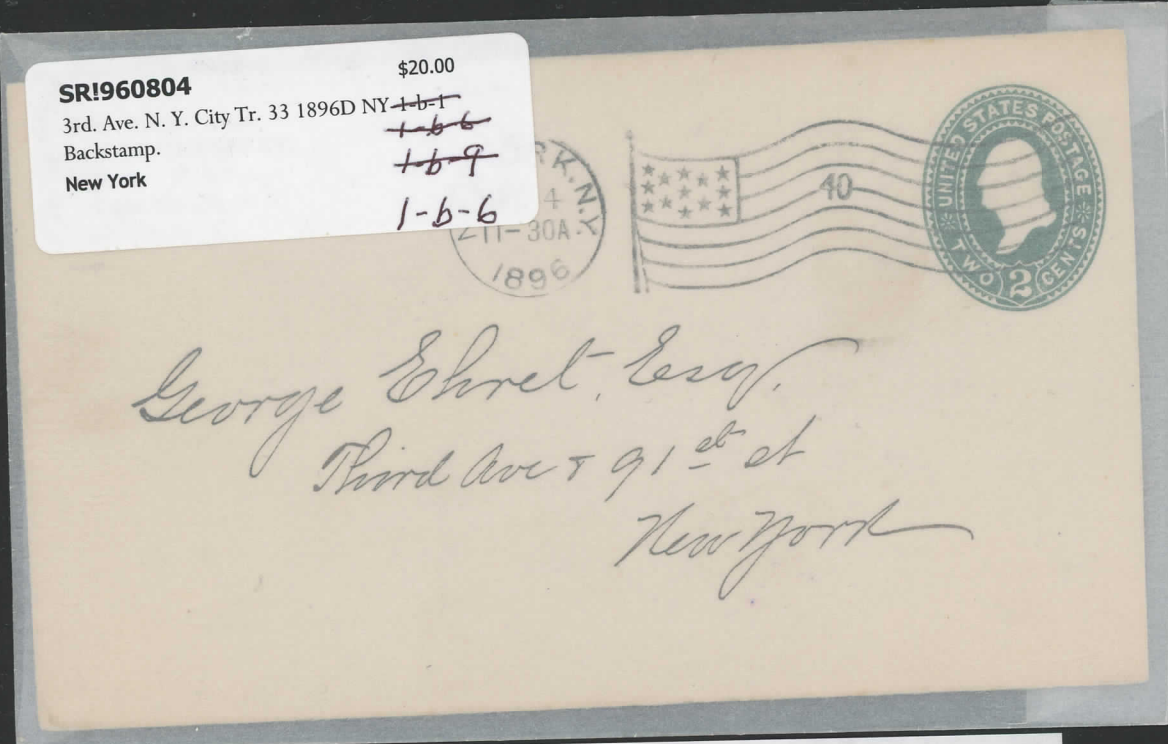 SR!960804
$20.00
3rd. Ave. N. Y. City Tr. 33 1896D NY 1-b-1
1-b-6
Backstamp.
1-b-9
New York
1-b-6
RK. N.Y.
4
11-30A
1896
40
UNITED STATES POSTAGE
TWO 2 CENTS
George Ehret, Esq.
Third Ave & 91st st
New York